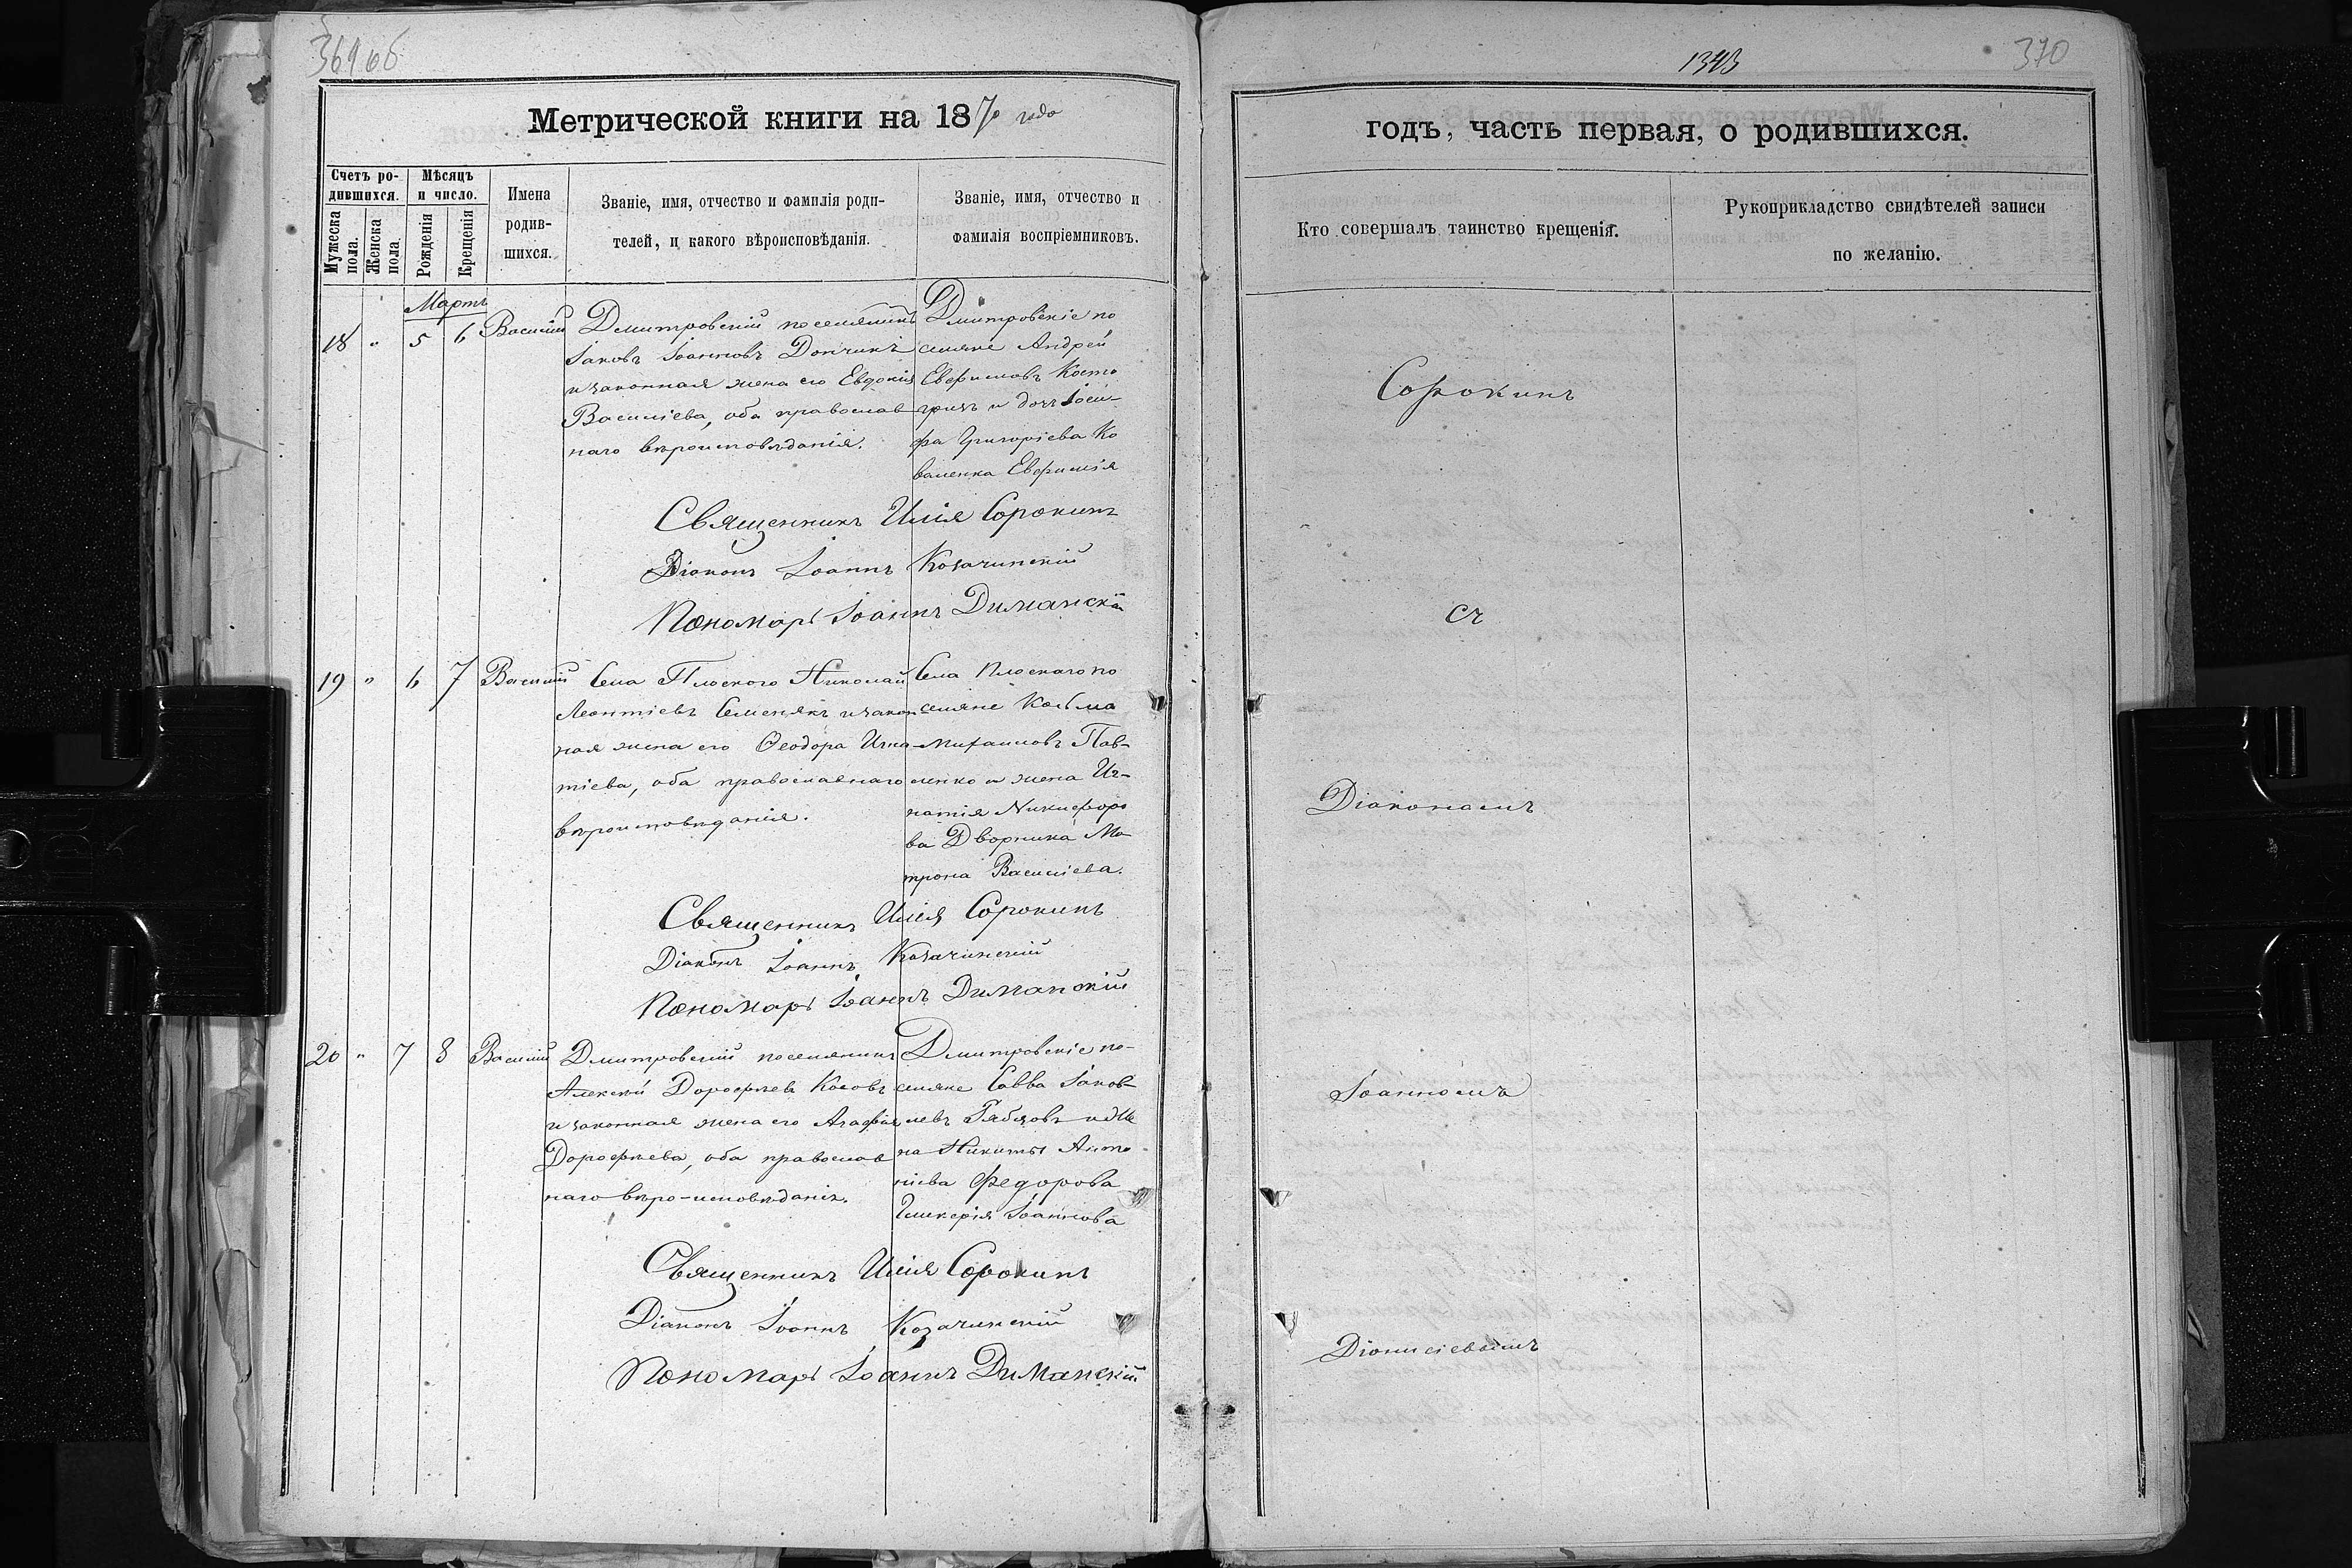 369 об
Метрической книги на 1870 года
Счетъ ро-
дившихся.
Мѣсяцъ
и число.
Мужеска
пола.
Женска
пола.
Рожденія
Крещенія
Имена
родив-
шихся.
Званіе, имя, отчество и фамилія роди-
телей, и какого вѣроисповѣданія.
Званіе, имя, отчество и
фамилія воспріемниковъ.
Мартъ
18 " 5 6 Василій
Дмитровскій поселянинъ
Іаковъ Іоанновъ Дончикъ
и законная жена его Евдокія
Василіева, оба православ
наго вѣроисповѣданія.
Дмитровскіе по
селяне Андрей
Евфимовъ Косто
гризъ и дочь Іоси-
фа Григоріева Ко
валенка Евфимія
Священникъ Илія Сорокинъ
Діаконъ Іоаннъ Козачинскій
Пономарь Іоаннъ Диманскій
19 " 6 7 Василій
Села Плоского Николай
Леонтіевъ Семенякъ и закон
ная жена его Ѳеодора Игна
тіева, оба православнаго
вѣроисповѣданія.
Села Плоскаго по
селяне Козьма
Михаиловъ Пав-
ленко и жена Иг-
натія Никифоро
ва Дворника Ма
трона Василіева.
Священникъ Илія Сорокинъ
Діаконъ Іоаннъ Козачинскій
Пономарь Іоаннъ Диманскій
20 " 7 8 Василій
Дмитровскій поселянинъ
Алексій Дорофѣевъ Косовъ
и законная жена его Агафія
Дорофѣева, оба православ
наго вѣро-исповѣданія.
Дмитровскіе по-
селяне Савва Іаков-
левъ Рябцовъ и же
на Никиты Анто
ніева Федорова
Гликерія Іоаннова
Священникъ Илія Сорокинъ
Діаконъ Іоаннъ Козачинскій
Пономарь Іоаннъ Диманскій
1343
370
годъ, часть первая, о родившихся.
Кто совершалъ таинство крещенія.
Рукоприкладство свидѣтелей записи
по желанію.
Сорокинъ
съ
Діакономъ
Іоанномъ
Діонисіевымъ